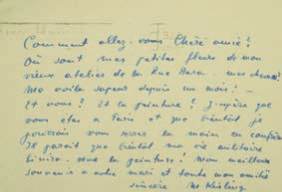 Comment allez-vous Chère amie!
Où sont mes petites fleurs de mon
vieux atelier de la Rue
Me voilà depuis un mois!
Et vous! Et la peinture! J'espère que
vous etes a Paris et que bientôt je
pourrais vous
Il parait que bientôt ma vie militaire
la peinture! Mon meilleur
souvenir a votre mari et toute mon amitié
sincère Kisling